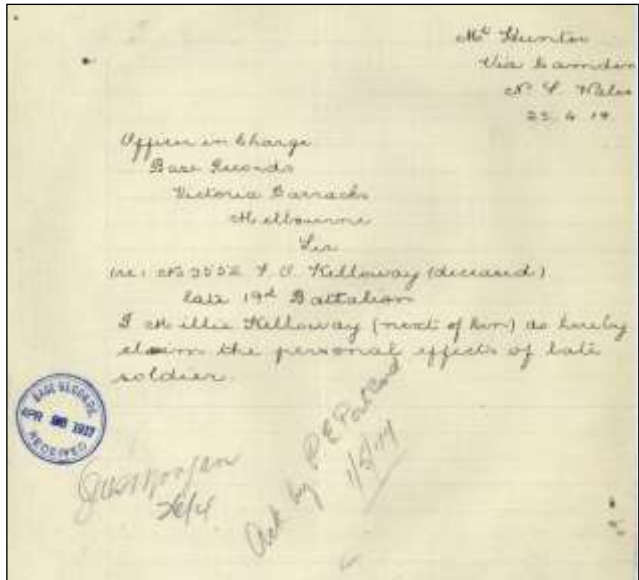 Mt Hunter
Via Camden
N. S. Wales
23. 4. 17.
Officer in Charge
Base Records
Victoria Barracks
Melbourne
Sir
re: No 3552 F. O. Kelloway (deceased)
late 19th Battalion
I Millie Kelloway (next of kin) do hereby
claim the personal effects of late
soldier.
BASE RECORDS
APR 1917
RECEIVED
26/4
Ack by P E Post Card
1/5/17